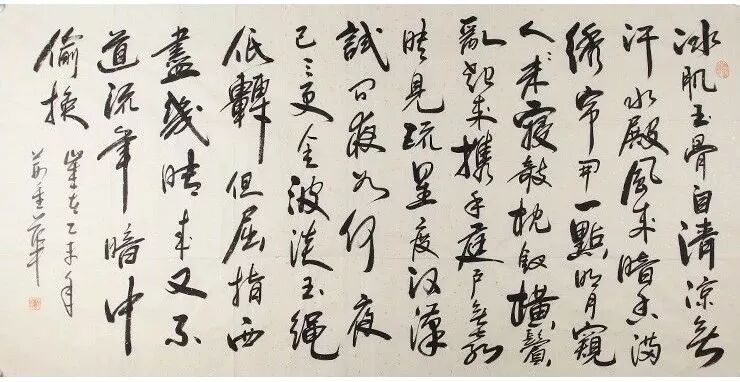 冰肌玉骨自清涼無
汗水殿風來暗香滿
綉帘開一點明月窺
人人未寢敧枕釵橫鬢
亂起來携手庭戶無聲
時見疏星度河漢
試問夜如何夜
已三更金波淡玉繩
低轉但屈指西
盡幾時來又不
道流年暗中
偷換
歲在乙未年